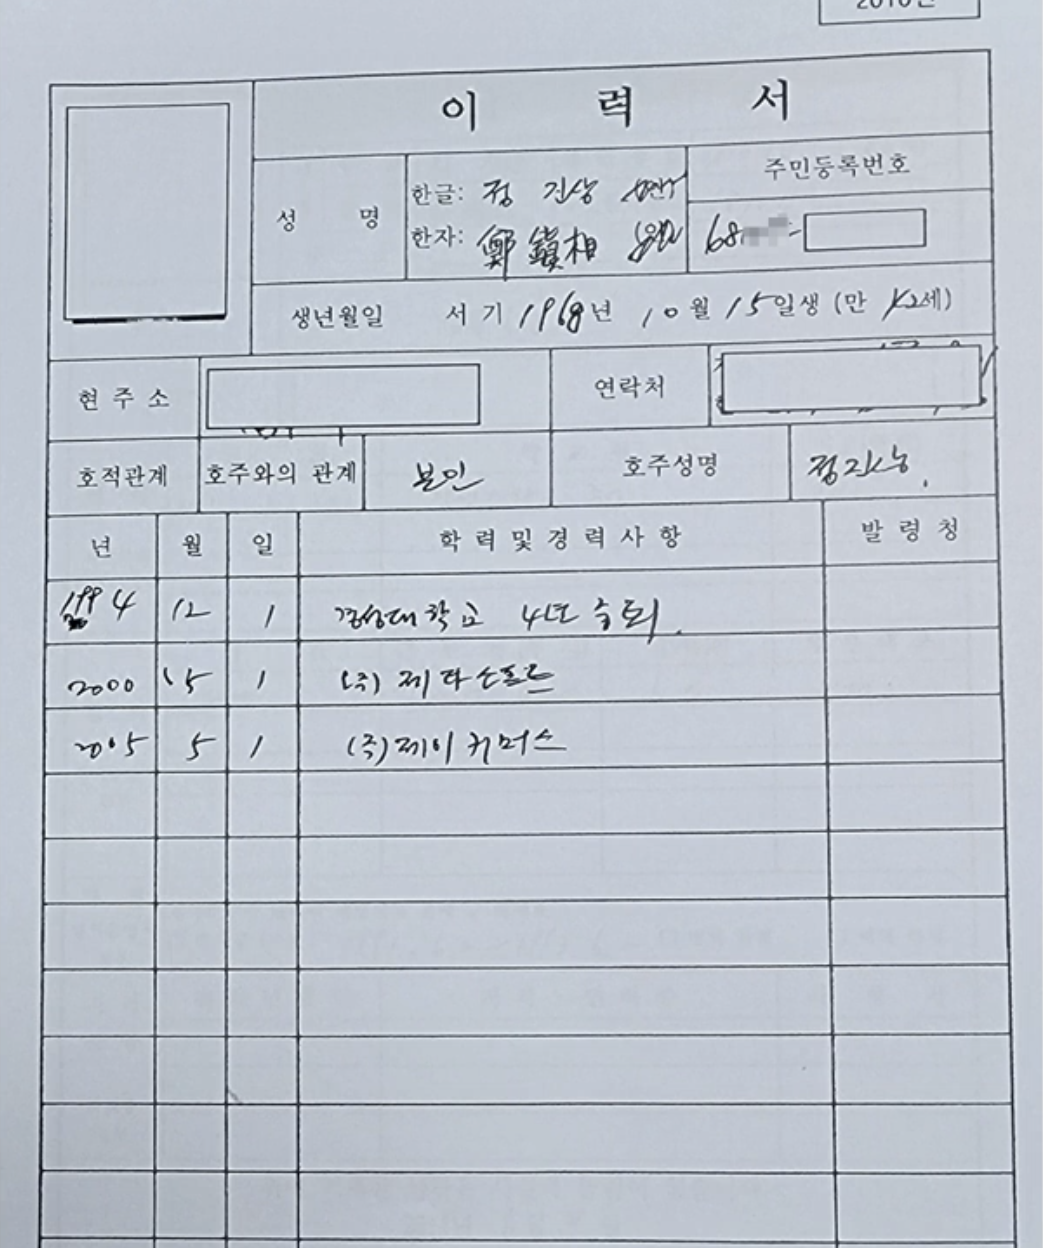 이 력 서
주민등록번호
성 명
한글: 정 진상
한자: 鄭 鎭相
68
생년월일 서기 1968년 10월 15일생 (만 세)
현 주 소 연락처
호적관계 호주와의 관계 본인 호주성명 정진상.
년 월 일 학 력 및 경 력 사 항 발 령 청
1994 12 1 경성대학교 4년
2000 5 1 (주)
2015 5 1 (주)제이커머스